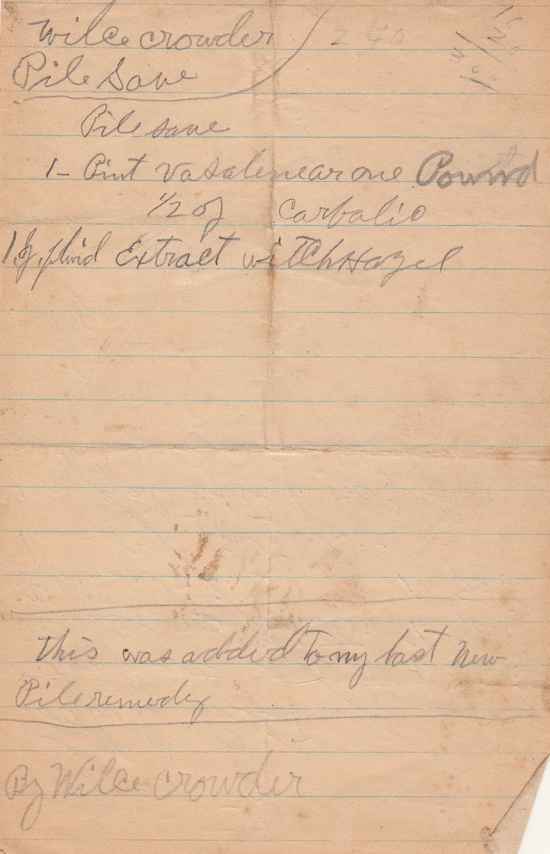 Wilce crowder
Pile Save
Pile save
1- Pint Vasalenear one Pound
1/2 oz Carbalic
1 oz. fluid Extract witchHazel
this was added to my last New
Pile remedy
By Wilce crowder